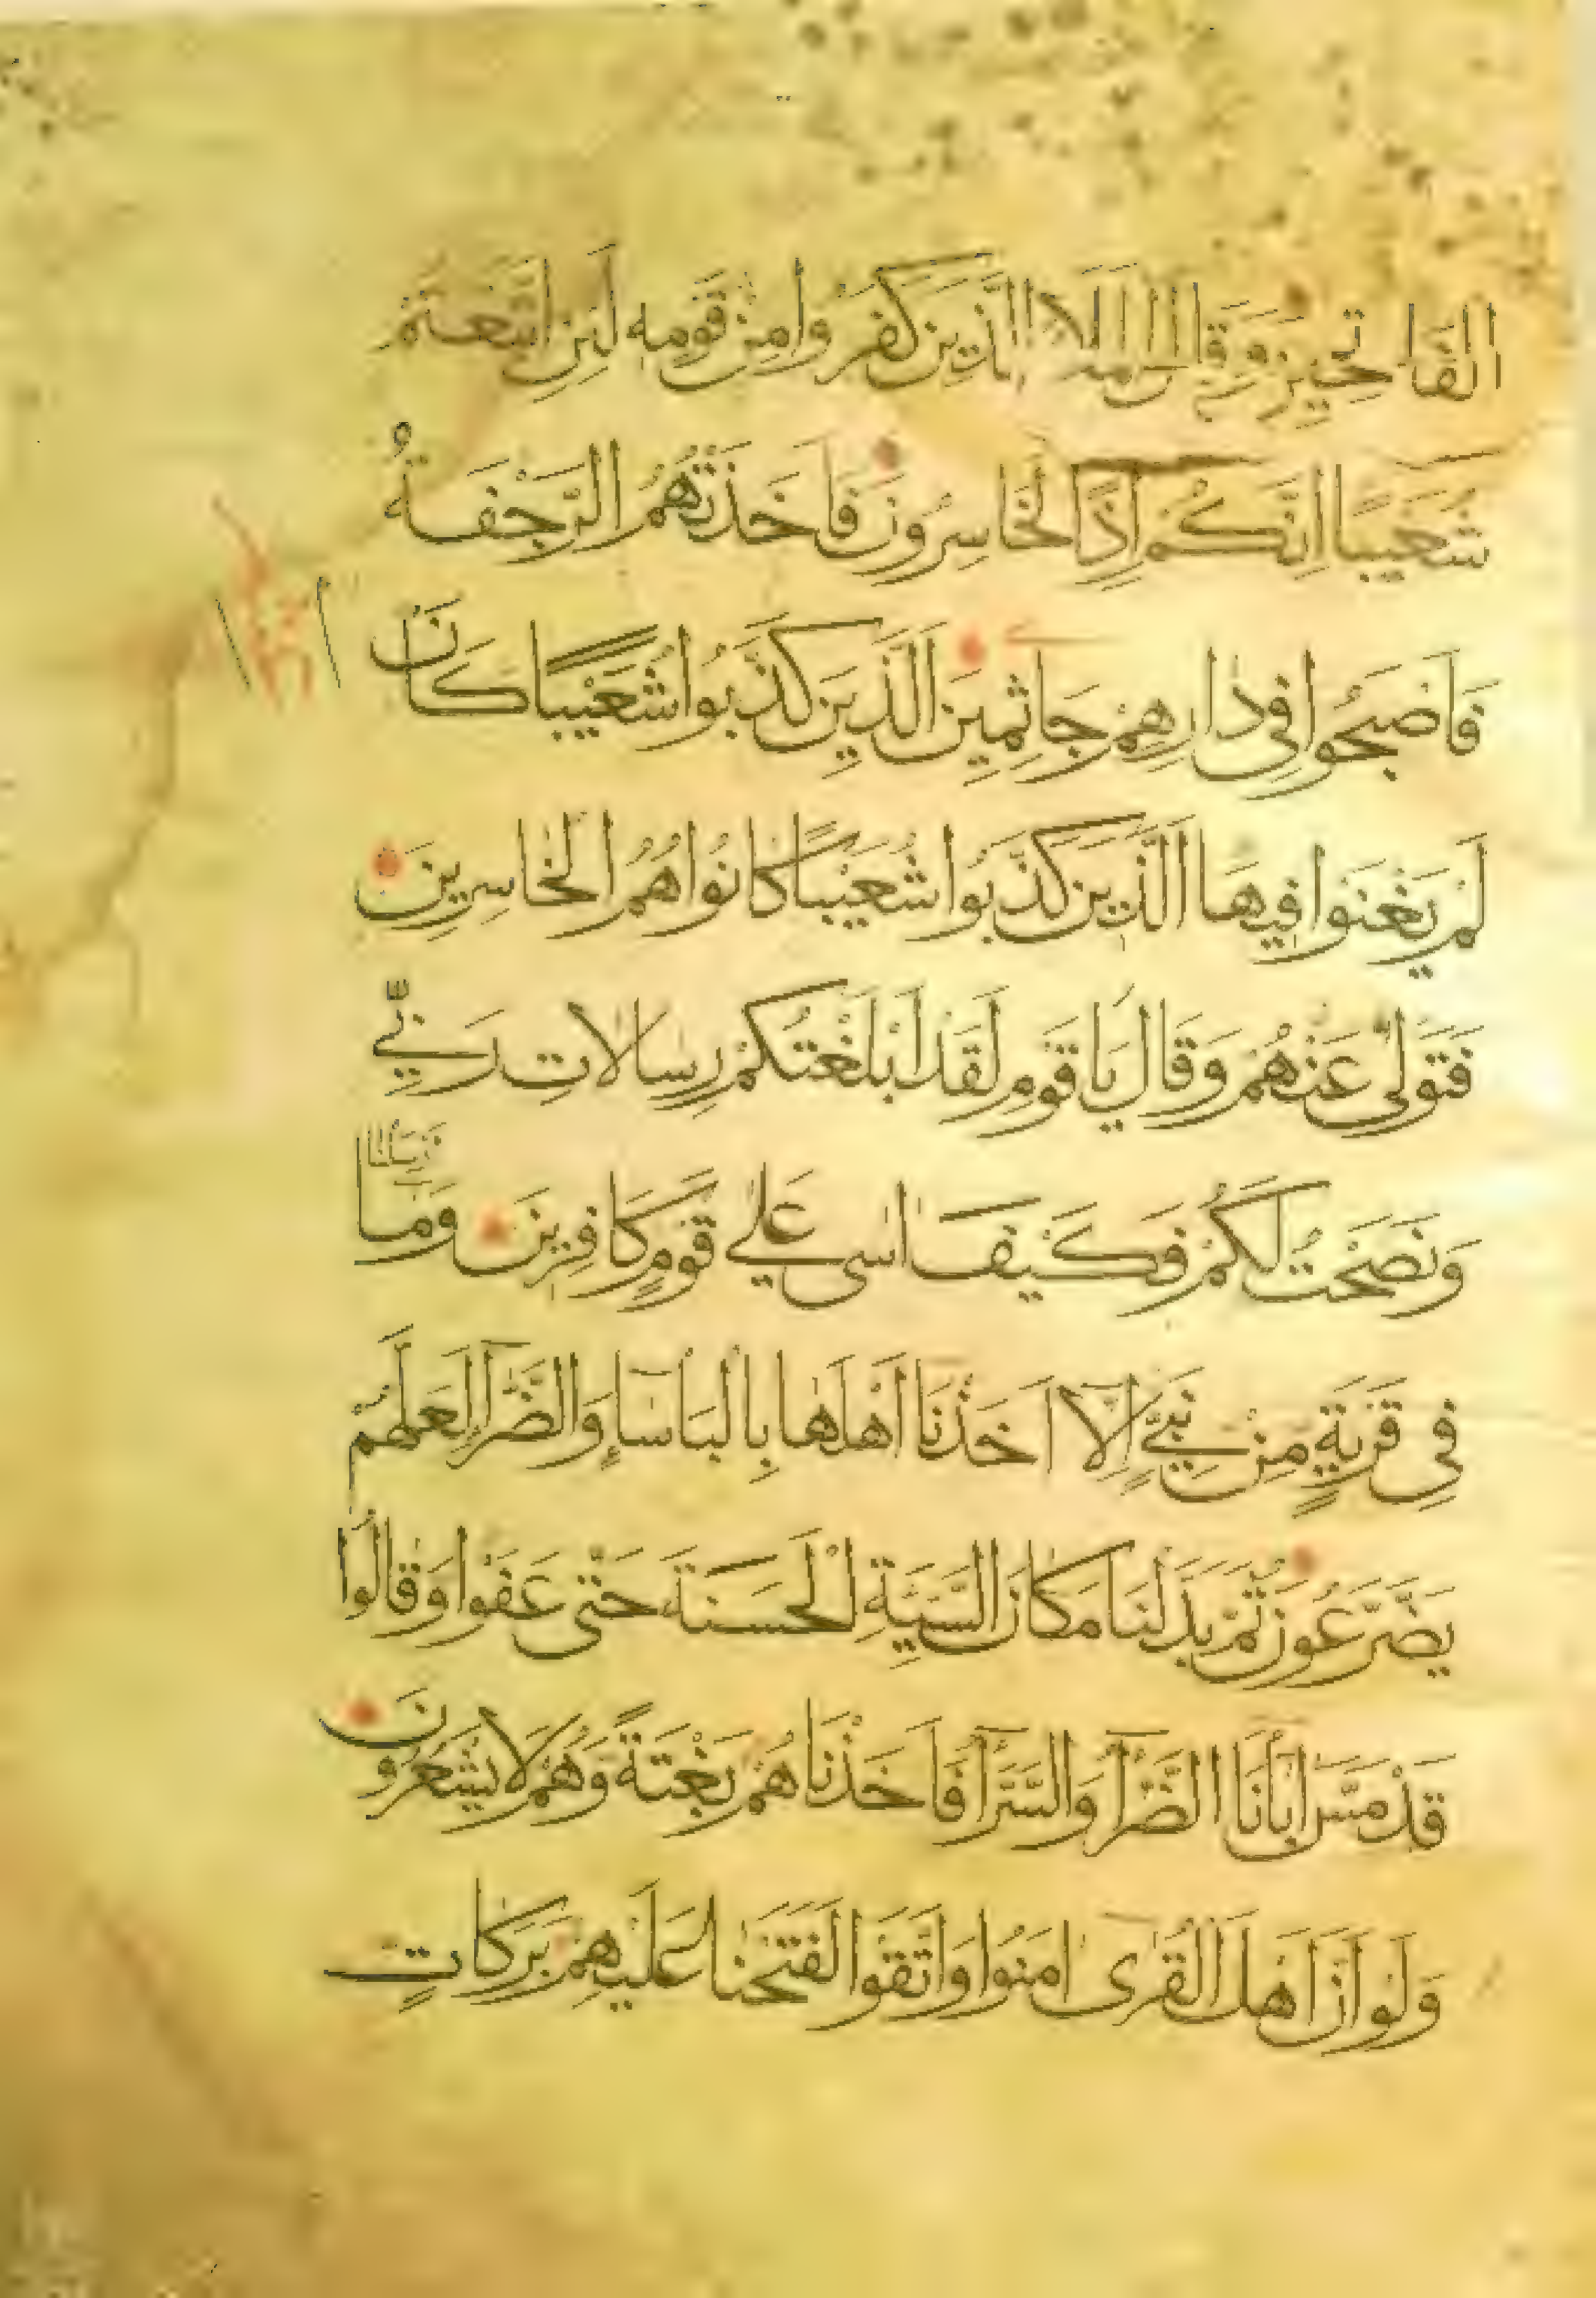 الفَاتِحِينَ وَقَالَ الْمَلَا الَّذِينَ كَفَرُوا مِنْ قَوْمِهِ لَئِنِ اتَّبَعْتُمْ
شُعَيْبًا اِنَّكُمْ اِذًا لَخَاسِرُونَ فَاَخَذَتْهُمُ الرَّجْفَةُ
فَاَصْبَحُوا فِي دَارِهِمْ جَاثِمِينَ الَّذِينَ كَذَّبُوا شُعَيْبًا كَانَ
لَمْ يَغْنَوْا فِيهَا اَلَّذِينَ كَذَّبُوا شُعَيْبًا كَانُوا هُمُ الْخَاسِرِينَ
فَتَوَلّٰى عَنْهُمْ وَقَالَ يَا قَوْمِ لَقَدْ اَبْلَغْتُكُمْ رِسَالَاتِ رَبِّي
وَنَصَحْتُ لَكُمْ فَكَيْفَ اٰسٰى عَلٰي قَوْمٍ كَافِرِينَ وَمَا اَرْسَلْنَا
فِي قَرْيَةٍ مِنْ نَبِيٍّ اِلَّا اَخَذْنَا اَهْلَهَا بِالْبَاْسَاءِ وَالضَّرَّاءِ لَعَلَّهُمْ
يَضَّرَّعُونَ ثُمَّ بَدَّلْنَا مَكَانَ السَّيِّئَةِ الْحَسَنَةَ حَتّٰى عَفَوْا وَقَالُوا
قَدْ مَسَّ اٰبَاۤنَا الضَّرَّآ وَالسَّرَّآ فَاَخَذْنَاهُمْ بَغْتَةً وَهُمْ لَا يَشْعُرُونَ
وَلَوْ اَنَّ اَهْلَ الْقُرٰى اٰمَنُوا وَاتَّقَوْا لَفَتَحْنَا عَلَيْهِمْ بَرَكَاتٍ